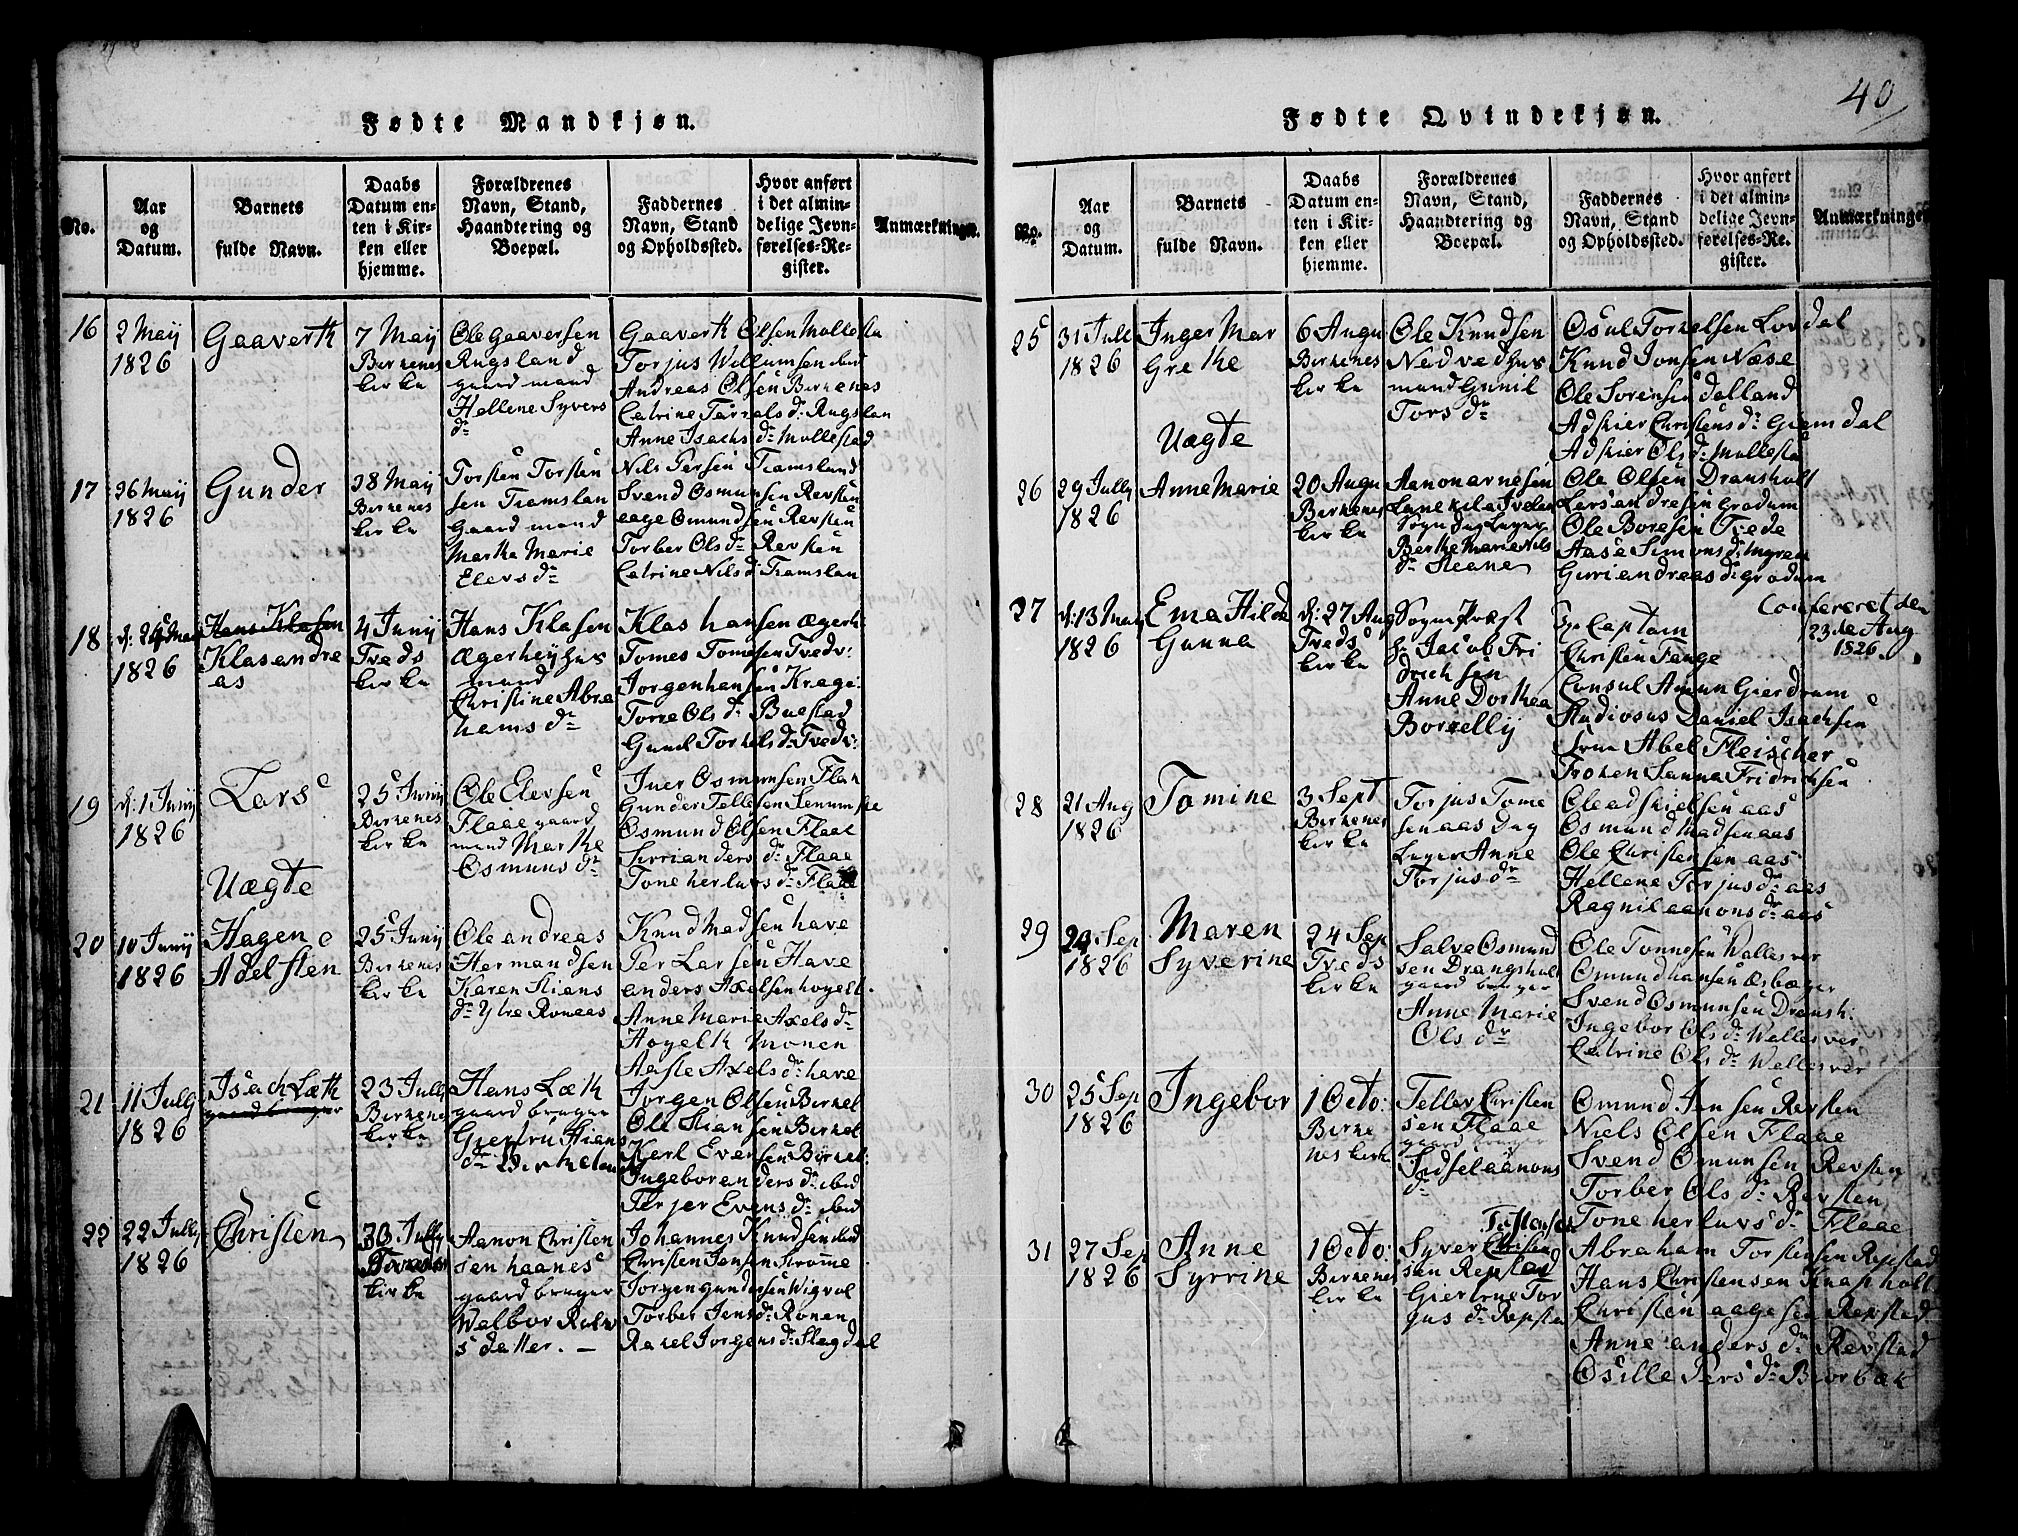 40
Fødte Mandkjøn.
No.
Aar
og
Datum.
Barnets
fulde Navn.
Daabs
Datum en-
ten i Kir-
ken eller
hjemme.
Forældrenes
Navn, Stand,
Haandtering og
Boepæl.
Faddernes
Navn, Stand
og Opholdssted.
Hvor anført
i det almin-
delige Jevn-
førelses-Re-
gister.
Anmærkninger.
16
2 Maij
1826
Gaaverth
7 Maij
Birkenes
kirke
Ole Gaaversen
Rugsland
gaard mand
Hellene Syvers
dr
Gaaverth Olsen Mollesta
Torjus Wellumsen ibid
Andreas Olsen Birkenes
Catrine Terkels dr Rugslan
Anne Isachs dr Mollestad
17
26 Maij
1826
Gunder
28 Maij
Birkenes
kirke
Torsten Torsten
sen Tramslan
Gaard mand
Marthe Marie
Elevs dr
Nils Persen Tramsland
Svend Osmunsen Revsten
aage Omundsen Revsten
Torber Ols dr Revsten
Catrine Nils d Tramslan
18
d: 24 Maij
1826
Hans Klasen
Klasandre
as
4 Junij
Treds
kirke
Hans Klasen
Ægerheij hus
mand
Christine Abra
hams dr
Klas hansen Ægerh:
Tomes Tomesen Tvedv:
Jorgen hansen Krage:
Torre Ols dr Buestad
Gunil Torkels dr Tvedv:
19
d: 1 Junij
1826
Lars
25 Junij
Birkenes
kirke
Ole Elevsen
Flaae gaard
mand Marthe
Osmuns dr
Iver Osmunsen Flaa
Gunder Tellefsen Senumste
Osmund Olsen Flaae
Sirri anders dr Flaae
Tone herluvs dr Flaae
Uægte
20
10 Junij
1826
Hagen
Adelsten
25 Junij
Birkenes
kirke
Ole andreas
Hermandsen
Karen Stians
dr Ytre Roneas
Knud Madsen have
Per Larsen Have
anders Axelsen hoyelt.
Anne Marie Axels dr
Hoyelth Monen
Aasle Axels dr have
21
11 Jully
1826
Isach Læth
gaard bruger
23 Jully
Birkenes
kirke
Hans Læth
gaard bruger
Giertru Stians
dr Birkelan
Jorgen Olsen Birkel
Ole Stiansen Birkel
Karl Evensen Birkel:
Ingebor anders dr ibid
Terjer Evens dr ibid
22
22 Jully
1826
Christen
30 Jully
Treds
kirke
Aanon Christen
sen haanes
gaard bruger
Welbor Rolv
s datter. —
Johannes Knudsen ibid
Christen Jensen Strømme
Jorgen gundersen Wigvol
Torber Jens dr Ronen
Raxel Jorgens dr Slogdal
Fødte Qvindekjøn.
No.
Aar
og
Datum.
Barnets
fulde Navn.
Daabs
Datum en-
ten i Kir-
ken eller
hjemme.
Forældrenes
Navn, Stand,
Haandtering og
Boepæl.
Faddernes
Navn, Stand
og Opholdssted.
Hvor anført
i det almin-
delige Jevn-
førelses-Re-
gister.
Anmærkninger
25
31 Jull
1826
Inger Mar
Grethe
6 Augu
Birkenes
kirke
Ole Knudsen
Nedved hus
mand Gunil
Tors dr
Osul Torkelsen Lovdal
Knud Jonsen Næse
Ole Sorensen dalland
Adskier Christens dr Giemdal
Adskier Ols dr Mollesta
Uægte
26
29 Jully
1826
Anne Marie
20 Augu
Birkenes
kirke
Aanon arnesen
Berthe Marie Nils
dr Steane
Ole Olsen Dransholt
Lars andresen Grodum
Ole Boresen Tvede
Aase Simons dr Ingren
Gurri andreas dr grodum
27
d: 13 Maij
1826
Ema Hilde
Gunna
d: 27 Aug
Treds
kirke
Sogne Præst
hr Jacob Fri
drichsen
Anne Dorthea
Borselly
Captain
Christen Fange
Consul Amun Gierdrum
Studiosus Daniel Isachsen
Frue Abel Fleischer
Froken Sanna Fridrichsen
Confereret den
23de Aug
1826.
28
21 Aug
1826
Tomine
3 Sept
Birkenes
kirke
Torjus Tome
sen aas Dag
Leyer Anne
Torjus dr
Ole adskielsen aas
Osmund Madsen aas
Ole Christensen aas
Hellene Torjus dr aas
Ragnil aanons dr aas
29
20 Sep
1826
Maren
Syverine
24 Sep
Treds
kirke
Salve Osmund
sen Drangsholt
gaard bruger
Anne Marie
Ols dr
Ole Tonnesen Wallesver
Omund hansen Æsbæger
Svend Osmunsen Dransh:
Ingebor Ols dr Wallesver
Catrine Ols dr Wallesver
30
25 Sep
1826
Ingebor
1 Octo:
Birke
nes kirk
Tellev Christen
sen Flaae
gaard bruger
Sidsel aanons
dr
Omund Jensen Revsten
Niels Olsen Flaae
Svend Omunsen Revsten
Torber Ols dr Revsten
Tone herluvs dr Flaae
31
27 Sep
1826
Anne
Syrrine
1 Octo:
Birkenes
kirke
Syver Christen
sen Repstad
Giertrue Tor
gus dr Repsta
Abraham Torstensen Repstad
Hans Christensen Knapholt
Christen aagesen Repstad
Anne anders dr Revstad
Osille Pers dr Biorbak